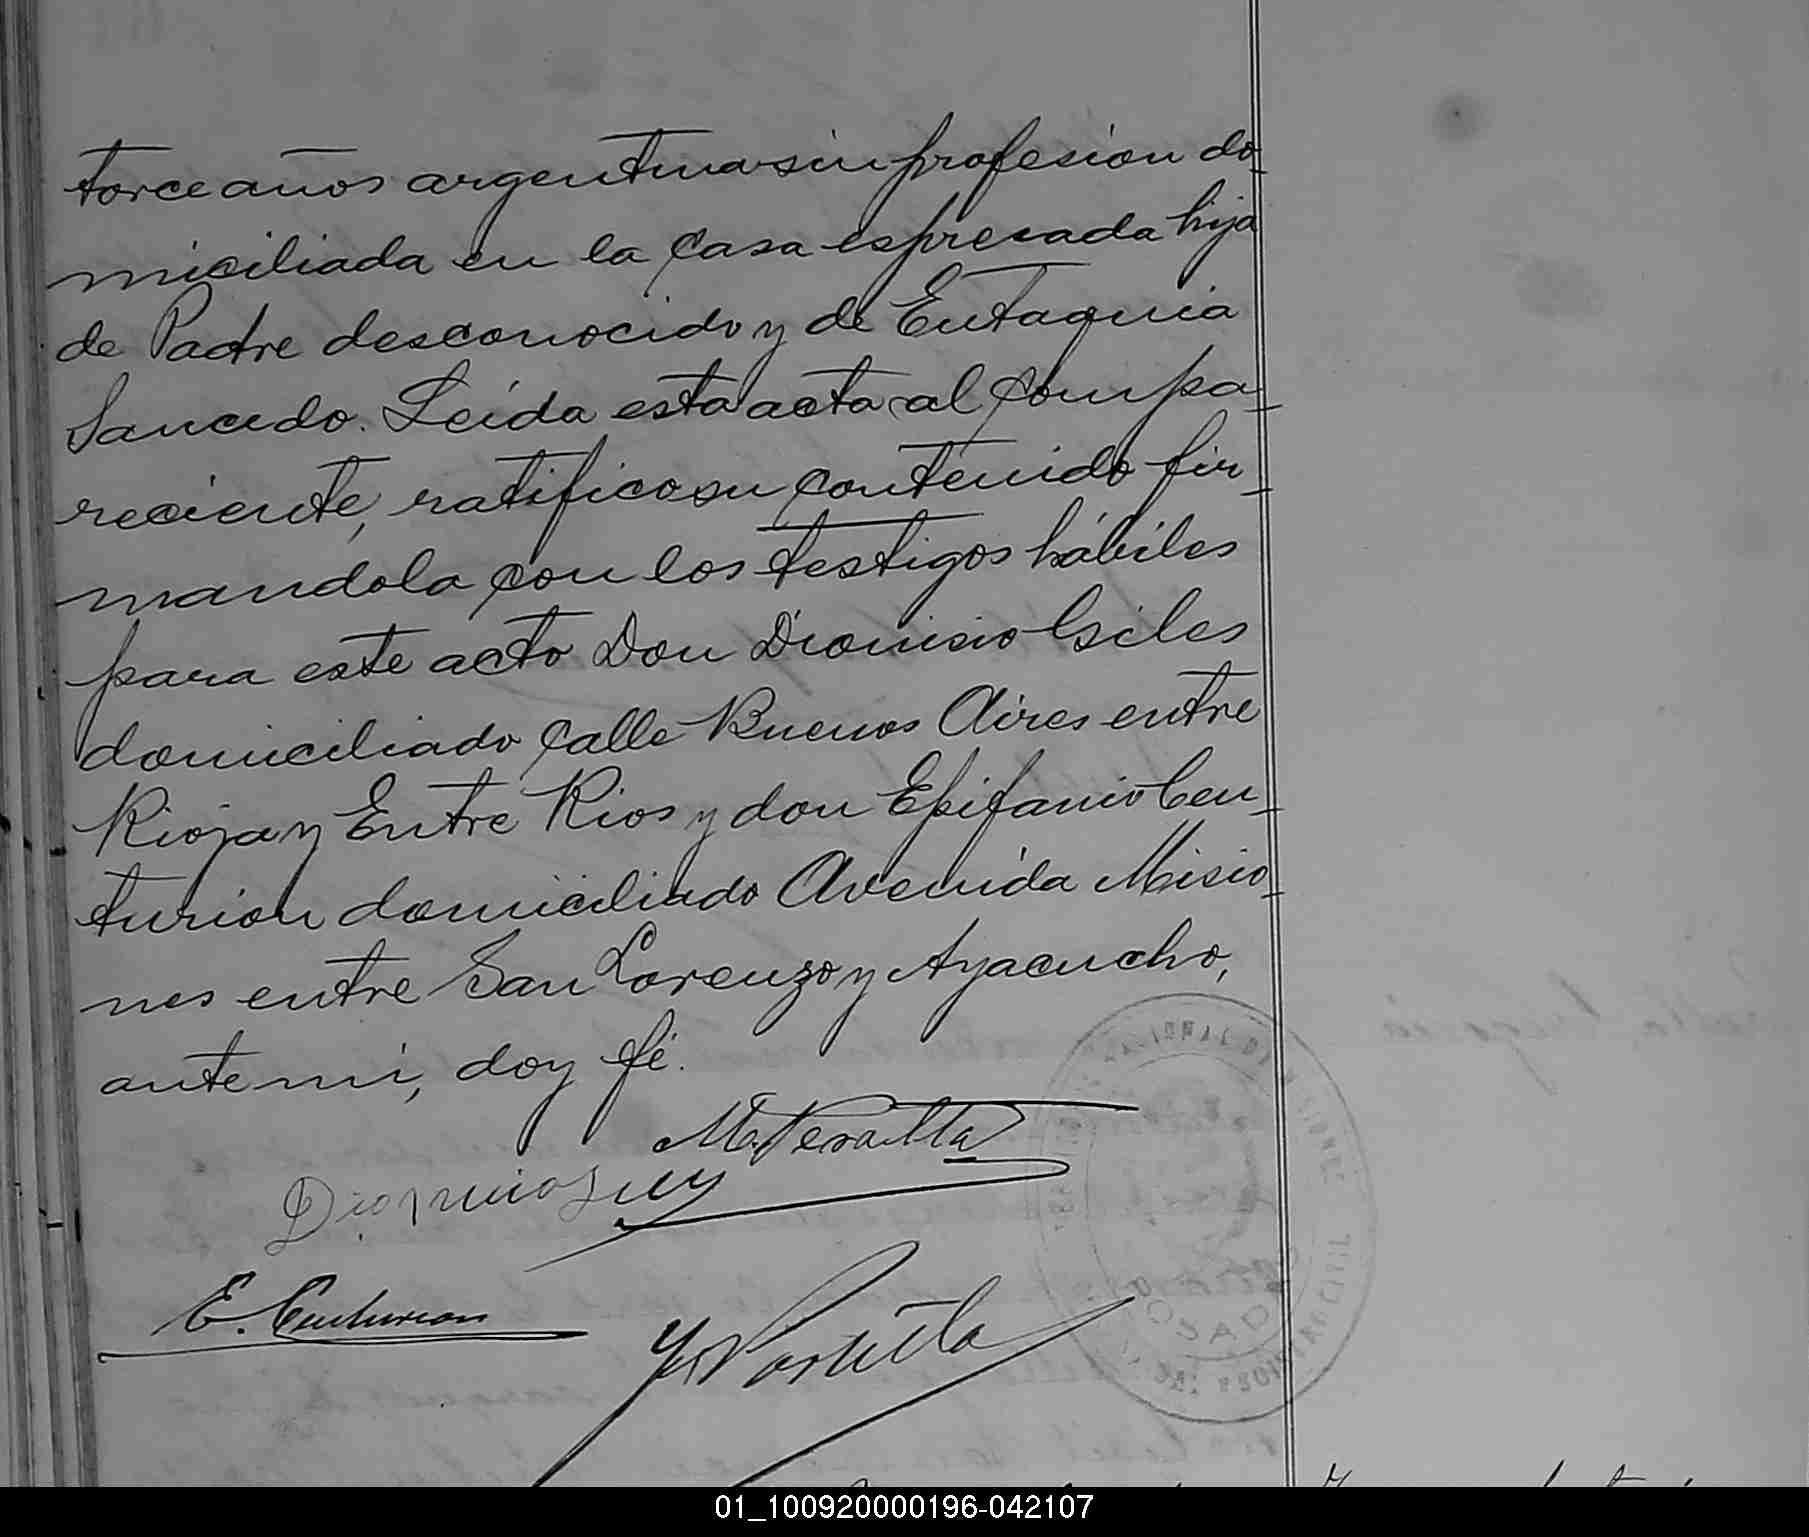 torce años argentina sin profesion do-
miciliada en la casa espresada hija
de Padre desconocido y de Eutaquia
Saucedo. Leída esta acta al compa-
reciente, ratifico su contenido fir-
mandola con los testigos hábiles
para este acto Don Dionisio Giles
domiciliado calle Buenos Aires entre
Rioja y Entre Rios y don Epifanio Cen-
turion domiciliado Avenida Misio-
nes entre San Lorenzo y Ayacucho,
ante mi, doy fé.
M. Peralta
E. Centurion
01_100920000196-042107